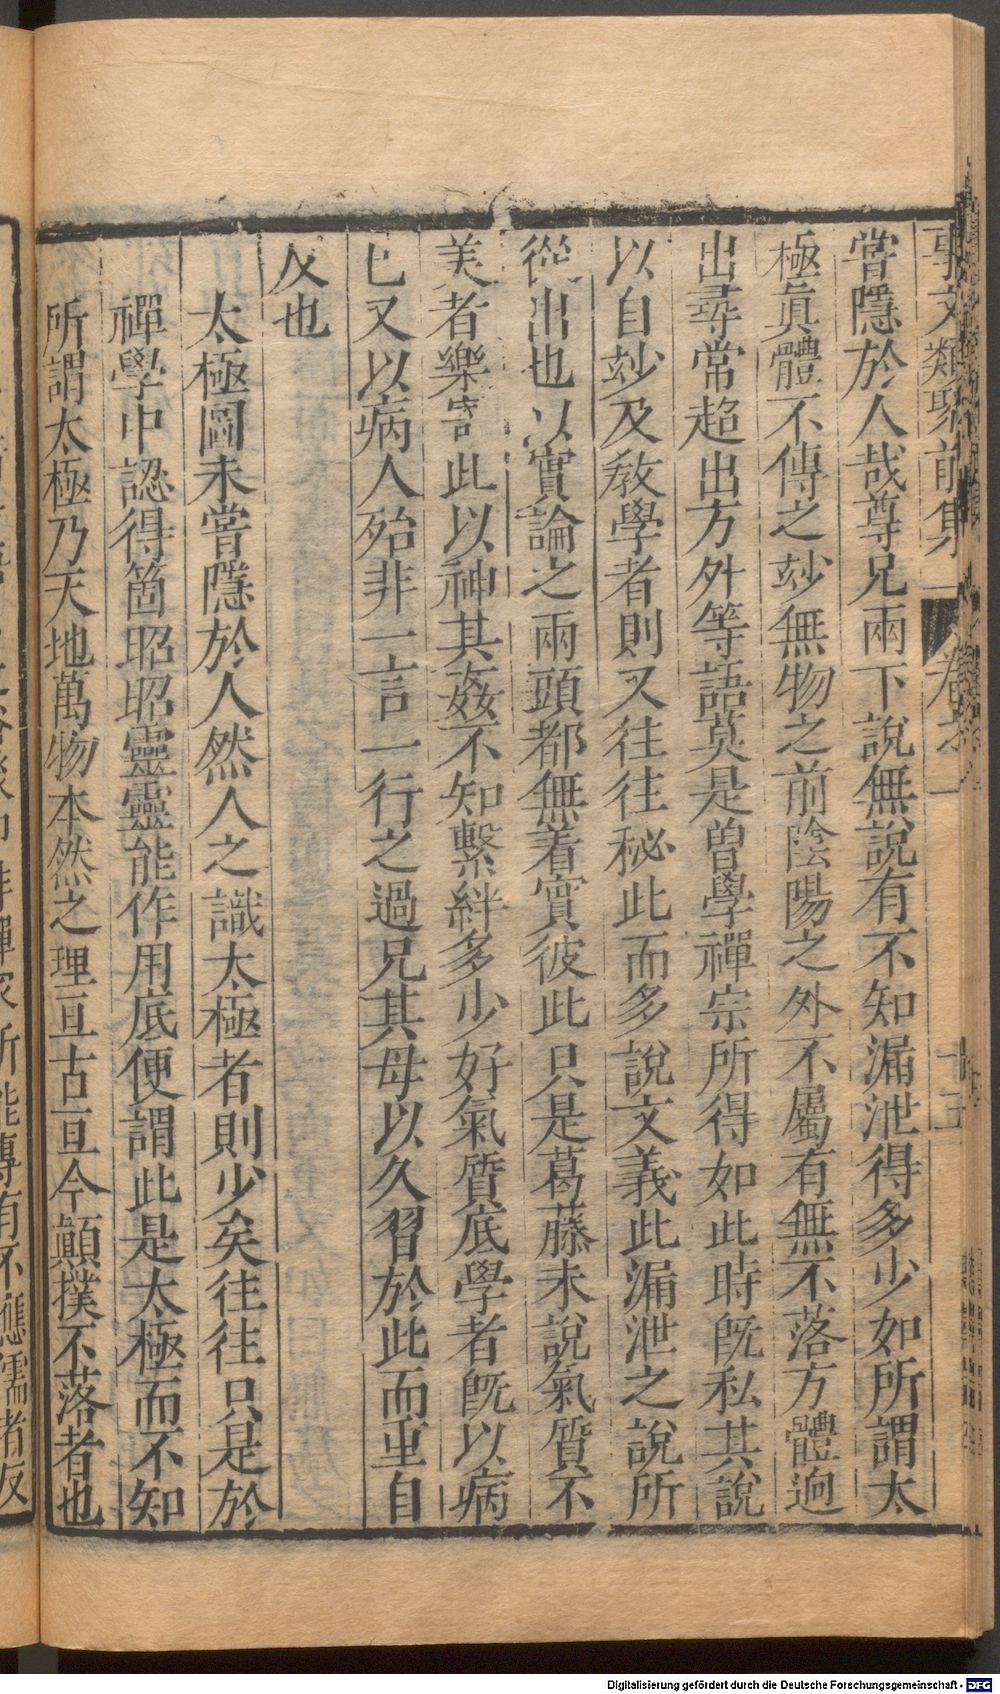 事文類聚前集 卷之二 十五
嘗隱於人哉尊兄兩下說無說有不知漏泄得多少如所謂太
極真體不傳之玅無物之前陰陽之外不屬有無不落方體迥
出尋常超出方外等語莫是曽學禪宗所得如此時旣私其說
以自玅及教學者則又往往秘此而多說文義此漏泄之說所
從出也以實論之兩頭都無着實彼此只是葛藤未說氣質不
美者樂寄此以神其姦不知繫絆多少好氣質底學者旣以病
已又以病人殆非一言一行之過兄其毋以久習於此而重自
反也
太極圖未嘗隱於人然人之識太極者則少矣往往只是於
禪學中認得箇昭昭靈靈能作用底便謂此是太極而不知
所謂太極乃天地萬物本然之理亘古亘今顚撲不落者也
禪家所能專有不應儒者反
Digitalisierung gefördert durch die Deutsche Forschungsgemeinschaft - DFG